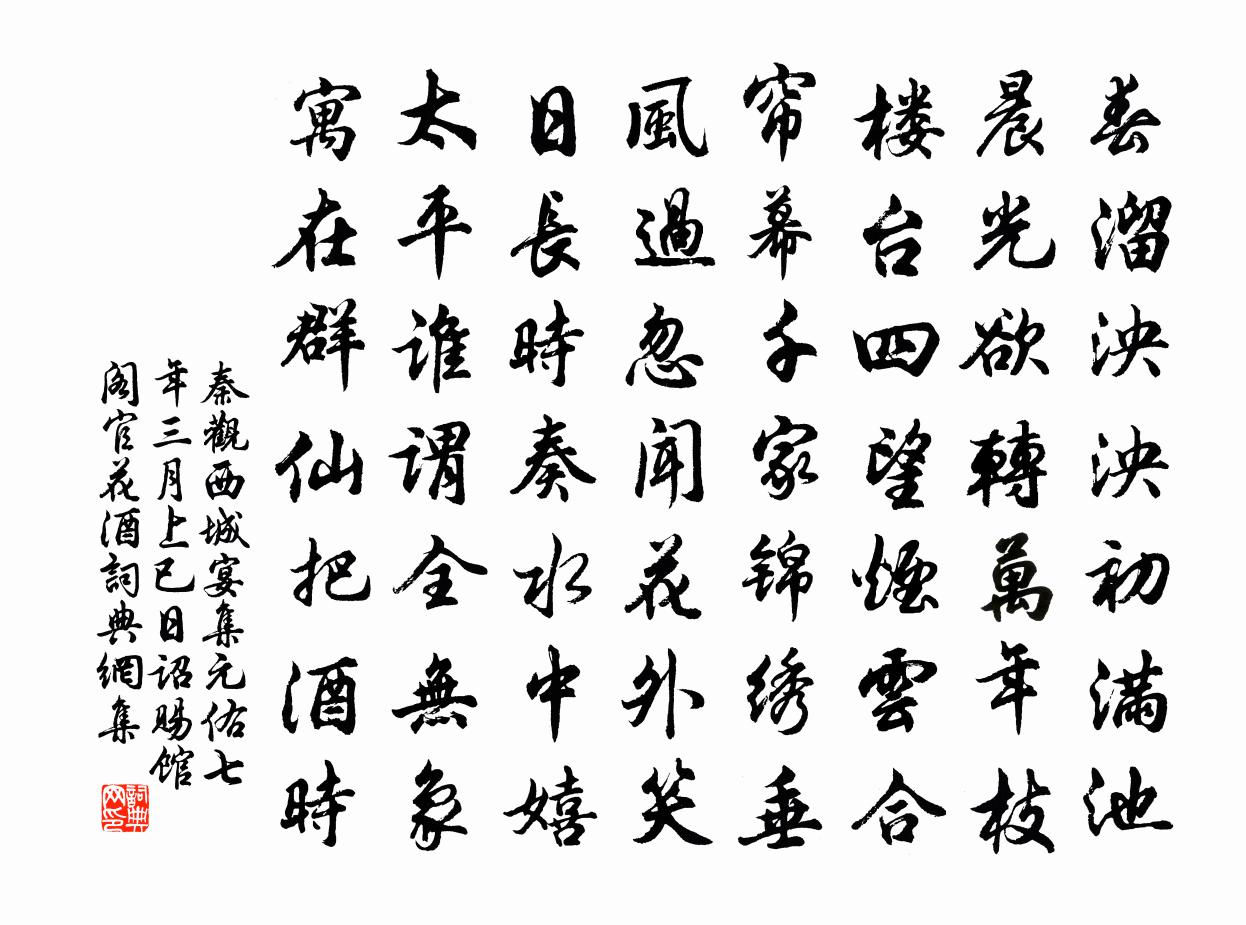 春溜泱泱初滿池
晨光欲轉萬年枝
楼台四望煙雲合
帘幕千家锦绣垂
風過忽聞花外笑
日長時奏水中嬉
太平誰謂全無象
寓在群仙把酒時
秦觀西城宴集元佑七
年三月上巳日詔賜館
阁官花酒詞典網集
詞典网印